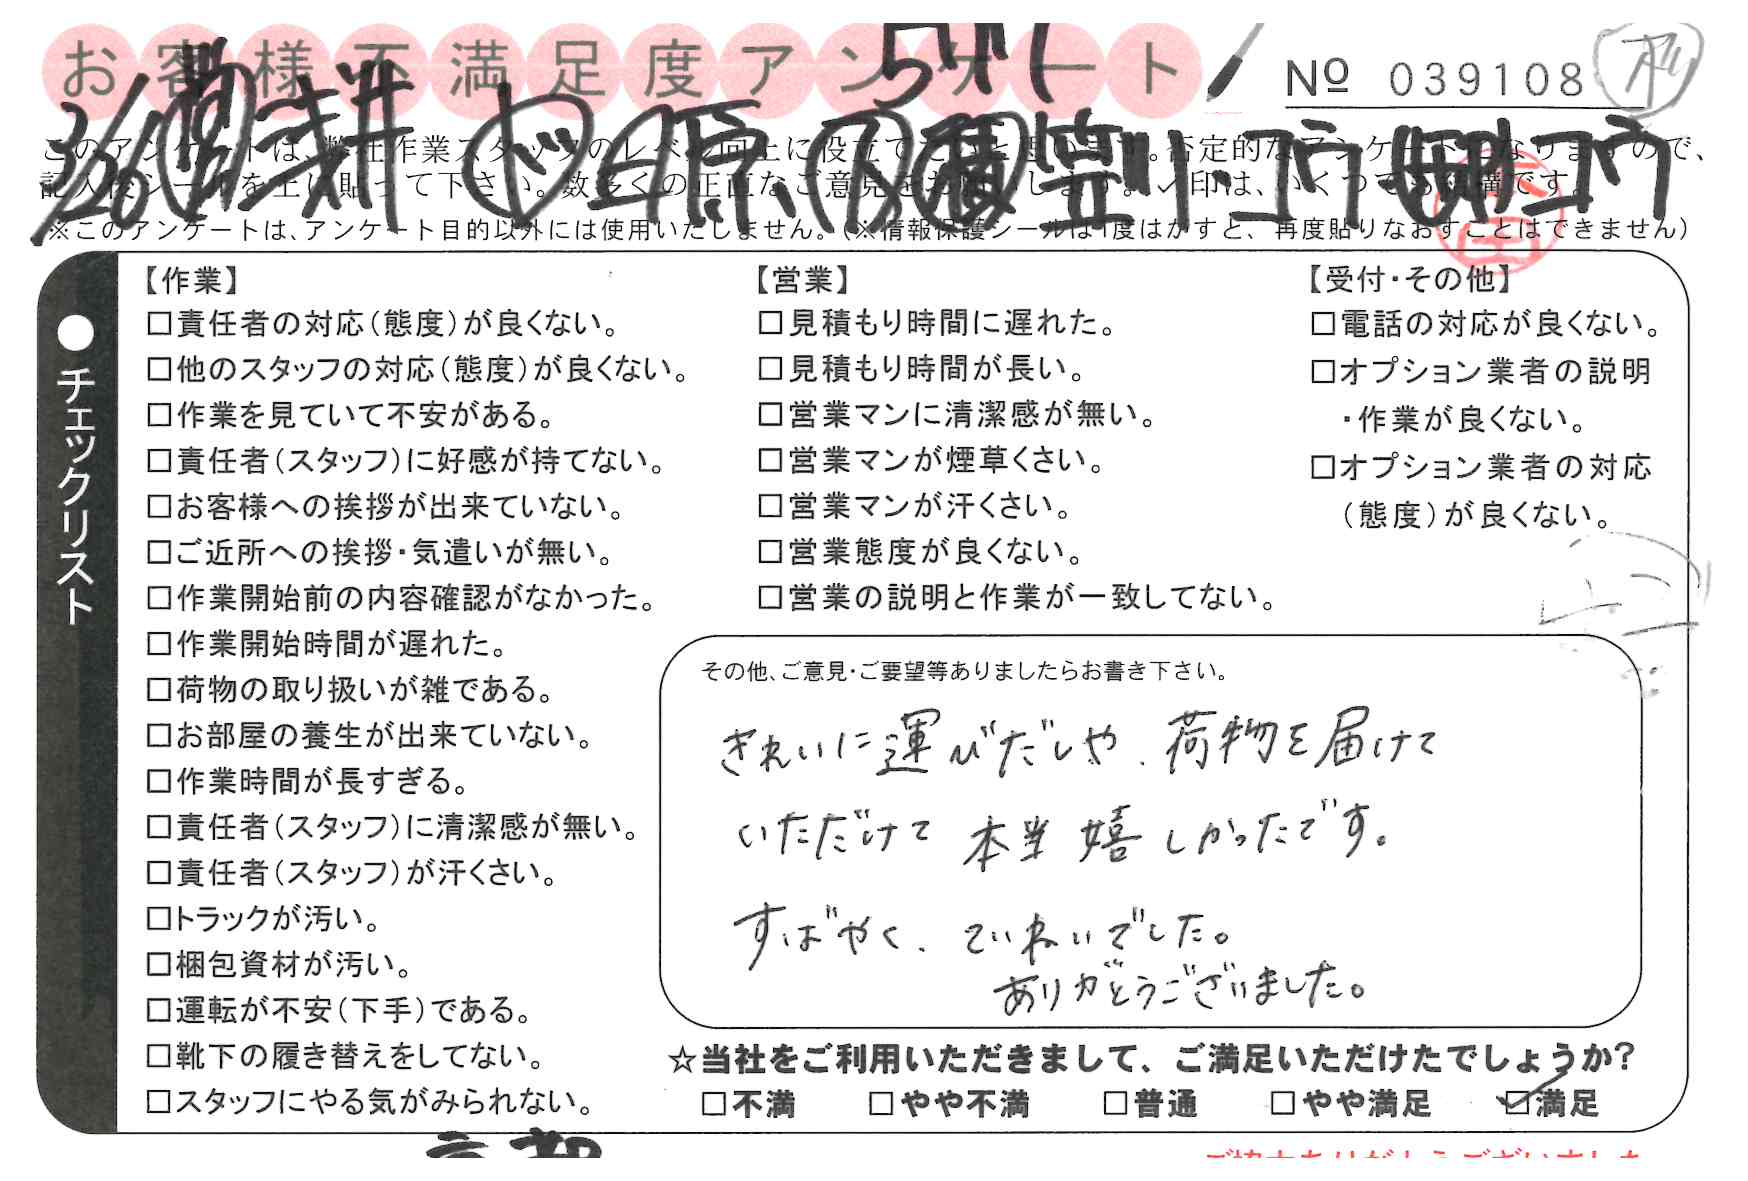 お客様不満足度アンケート
Nº 039108
3/26
このアンケートは、弊社作業スタッフのレベル向上に役立てたいと思います。否定的なアンケートになりますので、
記入後シールを上に貼って下さい。数多くの正直なご意見をお願いします。✓印は、いくつでも結構です。
※このアンケートは、アンケート目的以外には使用いたしません。(※情報保護シールは1度はがすと、再度貼りなおすことはできません)
●チェックリスト
【作業】
□責任者の対応(態度)が良くない。
□他のスタッフの対応(態度)が良くない。
□作業を見ていて不安がある。
□責任者(スタッフ)に好感が持てない。
□お客様への挨拶が出来ていない。
□ご近所への挨拶・気遣いが無い。
□作業開始前の内容確認がなかった。
□作業開始時間が遅れた。
□荷物の取り扱いが雑である。
□お部屋の養生が出来ていない。
□作業時間が長すぎる。
□責任者(スタッフ)に清潔感が無い。
□責任者(スタッフ)が汗くさい。
□トラックが汚い。
□梱包資材が汚い。
□運転が不安(下手)である。
□靴下の履き替えをしてない。
□スタッフにやる気がみられない。
【営業】
□見積もり時間に遅れた。
□見積もり時間が長い。
□営業マンに清潔感が無い。
□営業マンが煙草くさい。
□営業マンが汗くさい。
□営業態度が良くない。
□営業の説明と作業が一致してない。
【受付・その他】
□電話の対応が良くない。
□オプション業者の説明
・作業が良くない。
□オプション業者の対応
(態度)が良くない。
その他、ご意見・ご要望等ありましたらお書き下さい。
きれいに運びだしや、荷物を届けて
いただけて本当嬉しかったです。
すばやく、ていねいでした。
ありがとうございました。
☆当社をご利用いただきまして、ご満足いただけたでしょうか?
□不満 □やや不満 □普通 □やや満足 ☑満足
京都
ご協力ありがとうございました